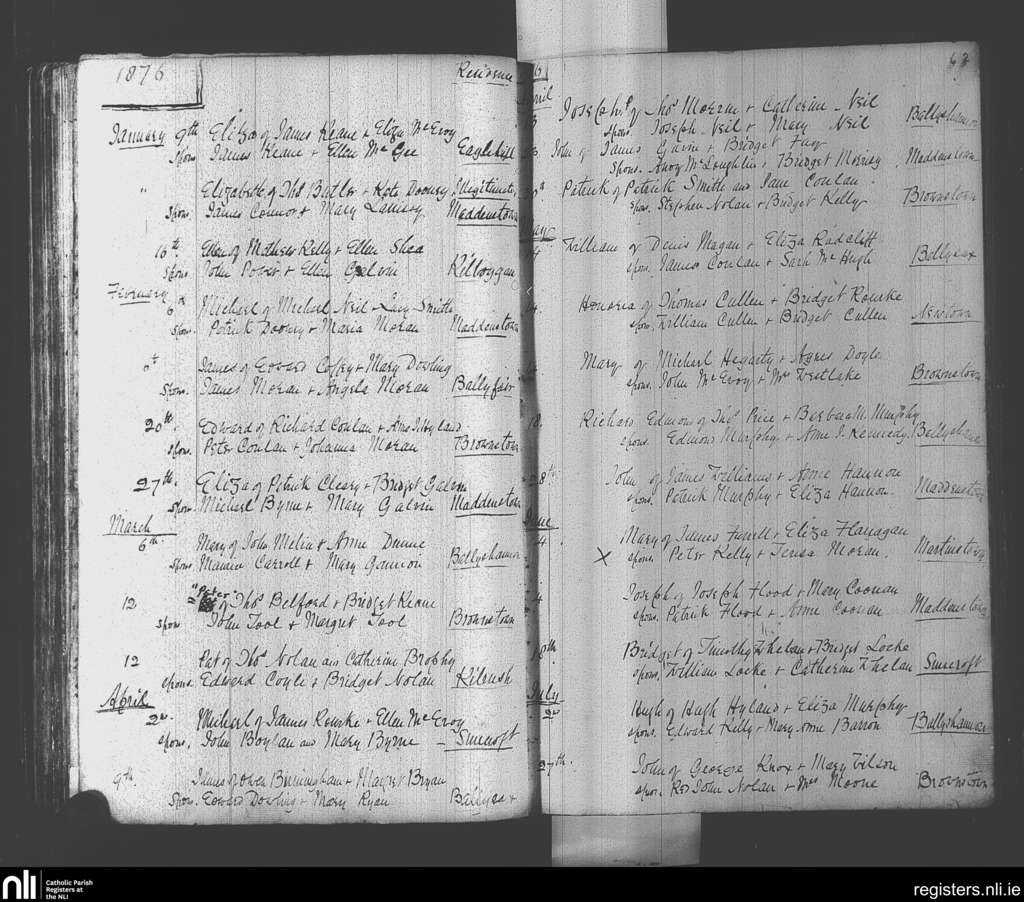 1876
Residence
January 9th Eliza of James Keane & Eliza McEvoy
Spons. James Keane & Ellen McGee Eaglehill
" Elizabeth of Thos Butler & Kate Doorley Illegitimate
Spons. James Connor & Mary Maddenstown
16th. Ellen of Mathew Kelly & Ellen Shea
Spons John Power & Ellen Galvin
February 6th Michael of Michael Neil & Lucy Smith
Spons. Patrick & Maria Moran Maddenstown
James of Edward Coffey & Mary Dowling
Spons. James Moran & Angela Moran Ballyfair
20th. Edward of Richard Conlan & Anne Hyland
Spons. Peter Conlan & Johanna Moran Brownstown
27th. Eliza of Patrick Cleary & Bridget Galvin
Spons. Michael Byrne & Mary Galvin Maddenstown
March
6th. Mary of John Melin & Anne Dunne
Spons Carroll & Mary Gannon Ballyshannon
12 "Peter" of Thos. Belford & Bridget Keane
Spons John Tool & Margret Tool Brownstown
12 Pat of Thos. Nolan and Catherine Brophy
Spons. Edward Coyle & Bridget Nolan Kilrush
April
2nd. Michael of James Rourke & Ellen McEvoy
Spons. John Boylan and Mary Byrne Suncroft
9th. James of Owen Birmingham & Margret Bryan
Spons. Edward Dowling & Mary Ryan Ballysax
Joseph of Thos & Catherine Neil
Spons. Joseph Neil & Mary Neil Ballyshannon
John of James & Bridget
Spons. Andy McLoughlin & Bridget Maddenstown
Patrick of Patrick Smith and Jane Conlan.
Spons. Stephen Nolan & Bridget Kelly Brownstown
William of Denis Magan & Eliza Radcliff
Spons. James Conlan & Sarh McHugh Ballysax
Honoria of Thomas Cullen & Bridget Rourke
Spons. William Cullen & Bridget Cullen Newtown
Mary of Michael Hegarty & Agnes Doyle
Spons. John McEvoy & Mrs Westlake Brownstown
18. Richard Edmond of Thos. Price & Barbara M. Murphy
Spons. Edmond Murphy & Anne J. Kennedy. Ballyshannon
28th John of James Williams & Anne Hannon
Spons. Patrick Murphy & Eliza Hannon. Maddenstown
June
4 Mary of James Farrell & Eliza Flanagan
X Spons. Peter Kelly & Teresa Moran. Martinstown
4 Joseph of Joseph Flood & Mary Coonan
Spons. Patrick Flood & Anne Coonan Maddenstown
Bridget of Timothy Whelan & Bridget Locke
Spons. William Locke & Catherine Whelan Suncroft
July
2nd Hugh of Hugh Hyland & Eliza Murphy
Spons. Edward Kelly & Mary Anne Barron Ballyshannon
27th. John of George Knox & Mary Wilson
Spons. Revd John Nolan & Mrs Moone Brownstown
nli
Catholic Parish
Registers at
the NLI
registers.nli.ie